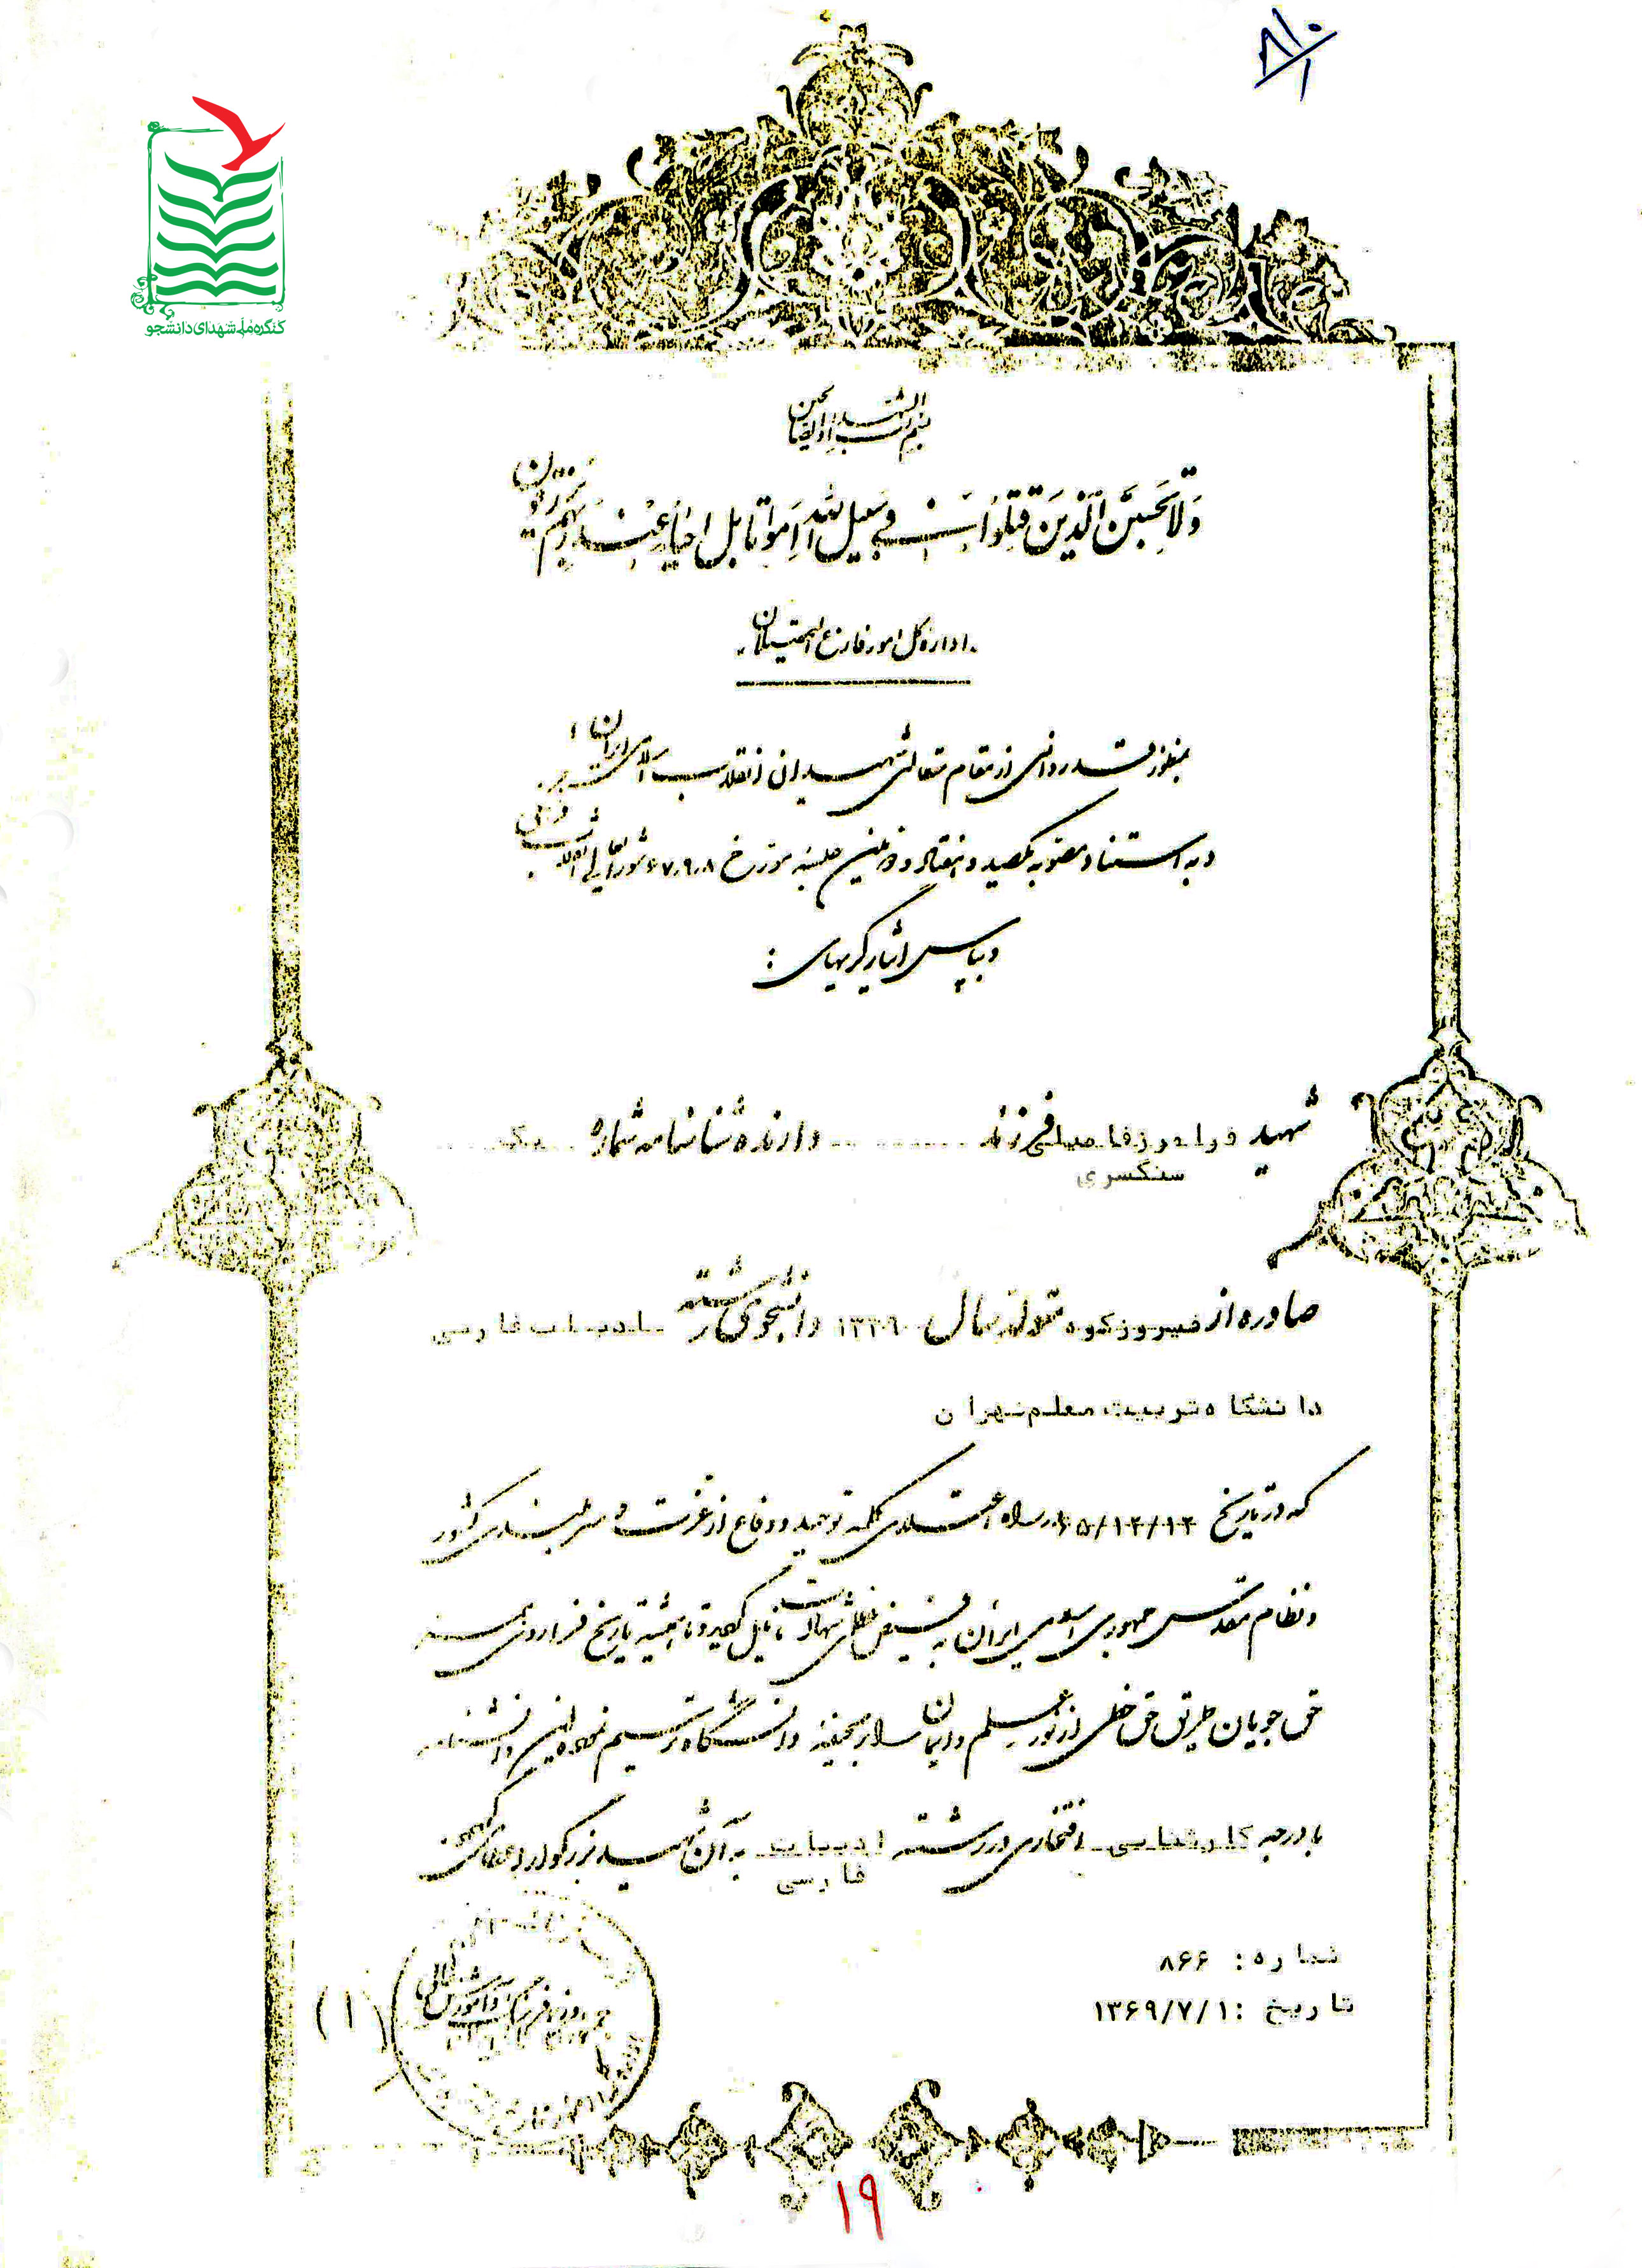 ۸۱۰/۱
کنگره ملی شهدای دانشجو
بسم رب الشهداء و الصدیقین
وَلا تَحْسَبَنَّ الَّذینَ قُتِلُوا فی سَبیلِ اللهِ اَمْواتاً بَلْ اَحْیاءٌ عِنْدَ رَبِّهِمْ یُرْزَقُونَ
اداره کل امور فارغ التحصیلان
بمنظور قدردانی از مقام متعالی شهیدان انقلاب اسلامی ایران
و به استناد مصوبه یکصد و هفتاد و دومین جلسه مورخ ۶۷،۹،۸ شورایعالی انقلاب فرهنگی
و بپاس ایثارگریهای :
شهید فرزند دارنده شناسنامه شماره یک
سنگسری
صادره از فیروزکوه متولد سال ۱۳۳۹ دانشجوی رشته ادبیات فارسی
دانشگاه تربیت معلم تهران
که در تاریخ ۶۵/۱۲/۱۲ در راه اعتلای کلمه توحید و دفاع از عزت و سربلندی کشور
و نظام مقدس جمهوری اسلامی ایران به فیض عظمای شهادت نایل گردید و تا همیشه تاریخ فرا روی همه
حق جویان طریق حق خطی از نور علم و ایمان دانشگاه ترسیم نموده این دانشنامه
با درجه کارشناسی افتخاری در رشته ادبیات به آن شهید بزرگوار اعطا می گردد
فارسی
شماره : ۸۶۶
تاریخ : ۱۳۶۹/۷/۱
وزارت فرهنگ و آموزش عالی
(۱)
۱۹